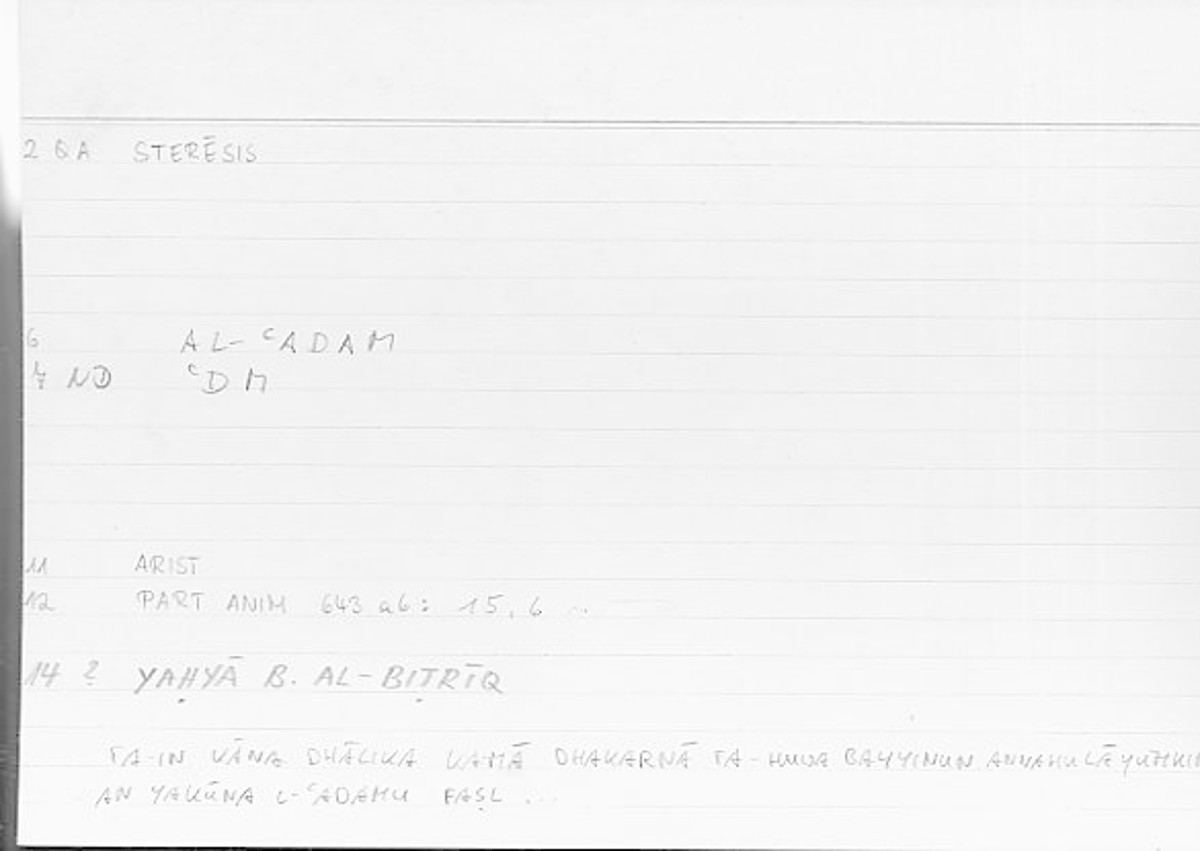 2 GA STERĒSIS
6 AL-ᶜADAM
7 ND ᶜDM
11 ARIST
12 PART ANIM 643 a6: 15,6 ..
14 ? YAḤYĀ B. AL-BIṬRĪQ
FA-IN KĀNA DHĀLIKA KAMĀ DHAKARNĀ FA-HUWA BAYYINUN ANNAHU LĀ YUMKIN
AN YAKŪNA L-ᶜADAMU FAṢL ...